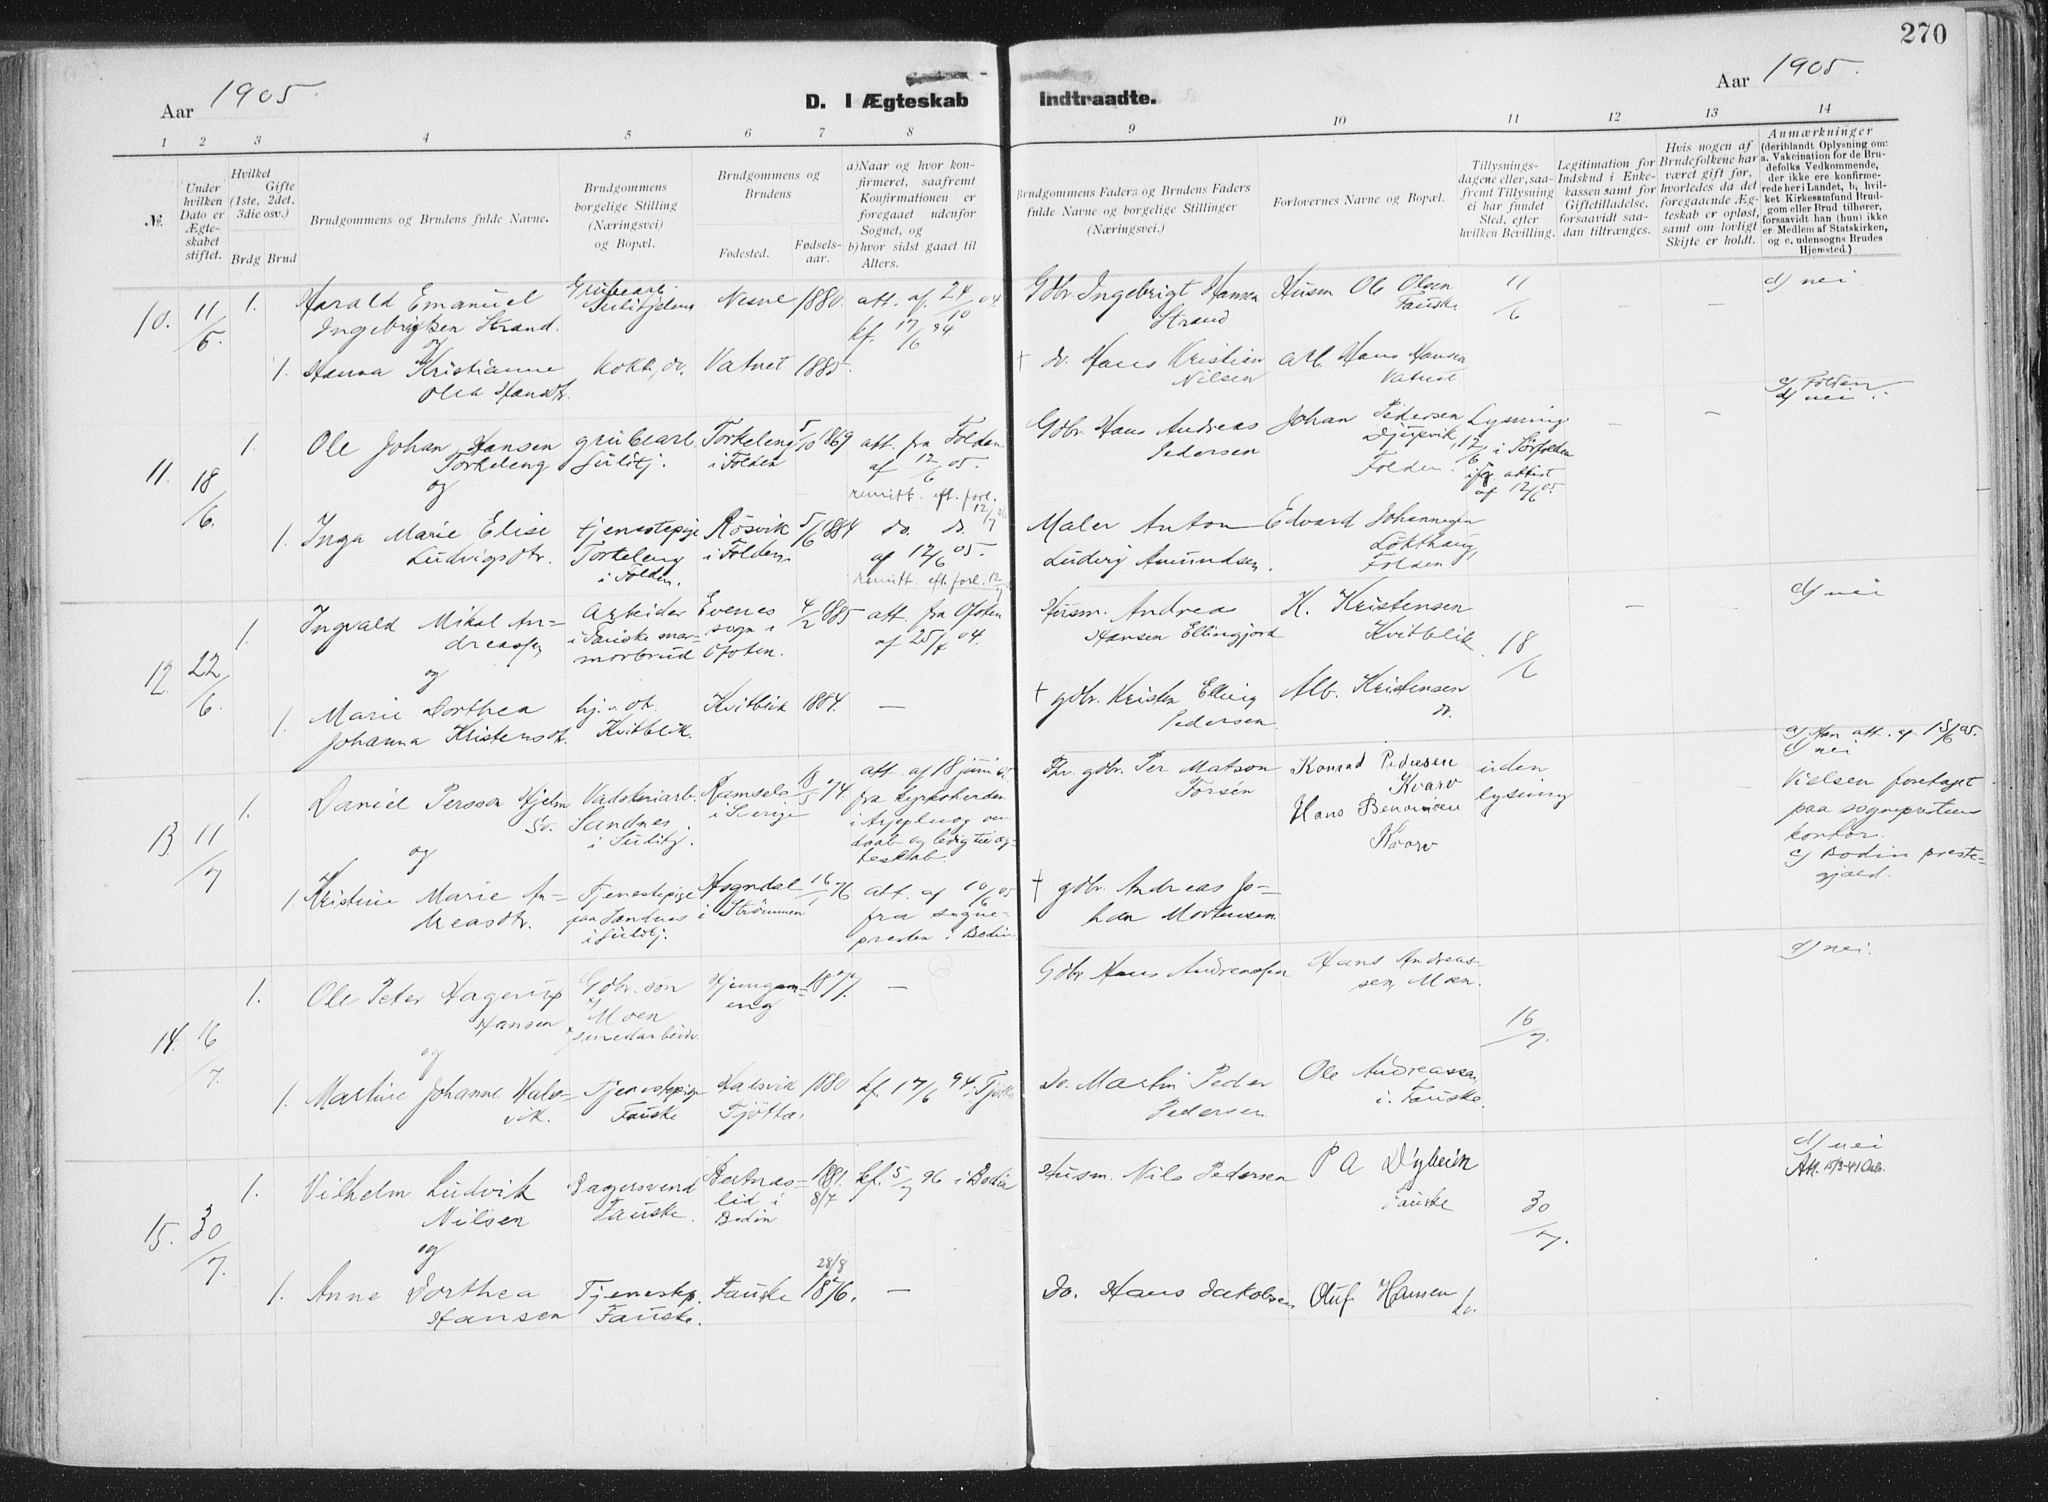 270
Aar 1905.
D. I Ægteskab Indtraadte.
Aar 1905.
1 2 3 4 5 6 7 8 9 10 11 12 13 14
№.
Under hvilken Dato er Ægteskabet stiftet.
Hvilket Gifte (1ste, 2det, 3die osv.)
Brdg Brud
Brudgommens og Brudens fulde Navne.
Brudgommens borgelige Stilling (Næringsvei) og Bopæl.
Brudgommens og Brudens
Fødested.
Fødselsaar.
a) Naar og hvor konfirmeret, saafremt Konfirmationen er foregaaet udenfor Sognet, og
b) hvor sidst gaaet til Alters.
Brudgommens Faders og Brudens Faders fulde Navne og borgelige Stillinger (Næringsvei.)
Forlovernes Navne og Bopæl.
Tillysningsdagene eller, saafremt Tillysning ei har fundet Sted, efter hvilken Bevilling.
Legitimation for Indskud i Enkekassen samt for Giftetilladelse, forsaavidt saadan tiltrænges.
Hvis nogen af Brudefolkene har været gift før, hvorledes da det foregaaende Ægteskab er opløst, samt om lovligt Skifte er holdt.
Anmærkninger (deriblandt Oplysning om: a. Vakcination for de Brudefolks Vedkommende, der ikke ere konfirmerede her i Landet, b, hvilket Kirkesamfund Brudgom eller Brud tilhører, forsaavidt han (hun) ikke er Medlem af Statskirken, og c, udensogns Brudes Hjemsted.)
10. 11/6. 1. Harald Emanuel Ingebrigtsen Strand.
Grubearb. Sulitjelma
Nesne 1880. att. af 24/10 04.
kf. 17/6 94
Gdbr. Ingebrigt Hansen Strand
Husm Ole Olsen Fauske
11/6
d) nei
og
1. Hanna Kristianne Olea Hansdtr.
kokk, do. Vatnet 1885.
† do. Hans Kristian Nilsen
arb. Hans Hansen Vatnet.
11. 18/6. 1. Ole Johan Hansen Torkeleng
grubearb. Sulitj.
Torkeleng i Folden
5/10 869
att. fra Folden af 12/6 05.
remitt. eft. forl. 12/7
Gdbr. Hans Andreas Pedersen
Johan Pedersen Djupvik, Folden.
Lysning 12/6 i Sørfolden ifg. attest af 12/6 05.
c) Folden
d) nei.
og
1. Inga Marie Elise Ludvigsdtr.
tjenestepige Torkeleng i Folden.
Røsvik i Folden.
5/6 884
do. do. af 12/6 05.
remitt. eft. forl. 12/7
Maler Anton Ludvig Amundsen.
Edvard Johannesen Løkthaug, Folden
12. 22/6. 1. Ingvald Mikal Andreassen
Arbeider i Fauske marmorbrud
Evenes sogn i Ofoten.
4/2 885
att. fra Ofoten af 25/7 04.
Husm. Andrea Hansen Ellingjord
K. Kristensen Kvitblik
18/6
d) nei
og
1. Marie Dorthea Johanna Kristensdtr.
hj.v. dt. Kvitblik.
Kvitblik 1884. —
† gdbr. Kristen Elling Pedersen
Alb. Kristensen do.
13. 11/7 1. Daniel Persson Hjelm
Sandnes i Sulitj.
Ramsele i Sverige
74.
att. af 18 juni 05. fra kyrkoherden i Arjepluog om daab og ledig til ægteskab.
gdbr. Per Matson Forsen
Konrad Pedersen Kvarv
Hans Benonisen Kvarv
uden lysning
a) Han att. af 18/6 05.
d) nei
Vielsen foretaget paa sogneprestens kontor.
c) Bodin prestegjæld.
og
1. Kristine Marie Andreasdtr.
Tjenestepige paa Sandnes i Sulitj.
Hogndal i Strømmen
16/1 76
att. af 10/6 05 fra sognepresten i Bodin
† gdbr. Andreas Johan Mortensen
14. 16/7. 1. Ole Peter Hagerup Hansen
Gdbr. søn Moen
1877. —
Gdbr Hans Andreassen
Hans Andreassen, Moen.
16/7.
d) nei.
og
1. Martine Johanne Halsvik.
Tjenestepige Fauske
Halsvik Tjøtta.
1880 kf. 17/6 94. Tjøtta
Do. Martin Peder Pedersen
Ole Andreassen i. Fauske.
15. 30/7. 1. Vilhelm Ludvik Nilsen
Bagersvend Fauske.
Bertnaslid i Bodin
1881. 8/7
kf. 5/7 96 i Bodin
Husm. Nils Pedersen
P A Dybeim Fauske
30/7.
d) nei
Att. 15/3-41 Oslo.
og
1. Anne Dorthea Hansen
Tjenestep. Fauske.
Fauske
28/8 1876. —
Do. Hans Jakobsen
Oluf Hansen do.